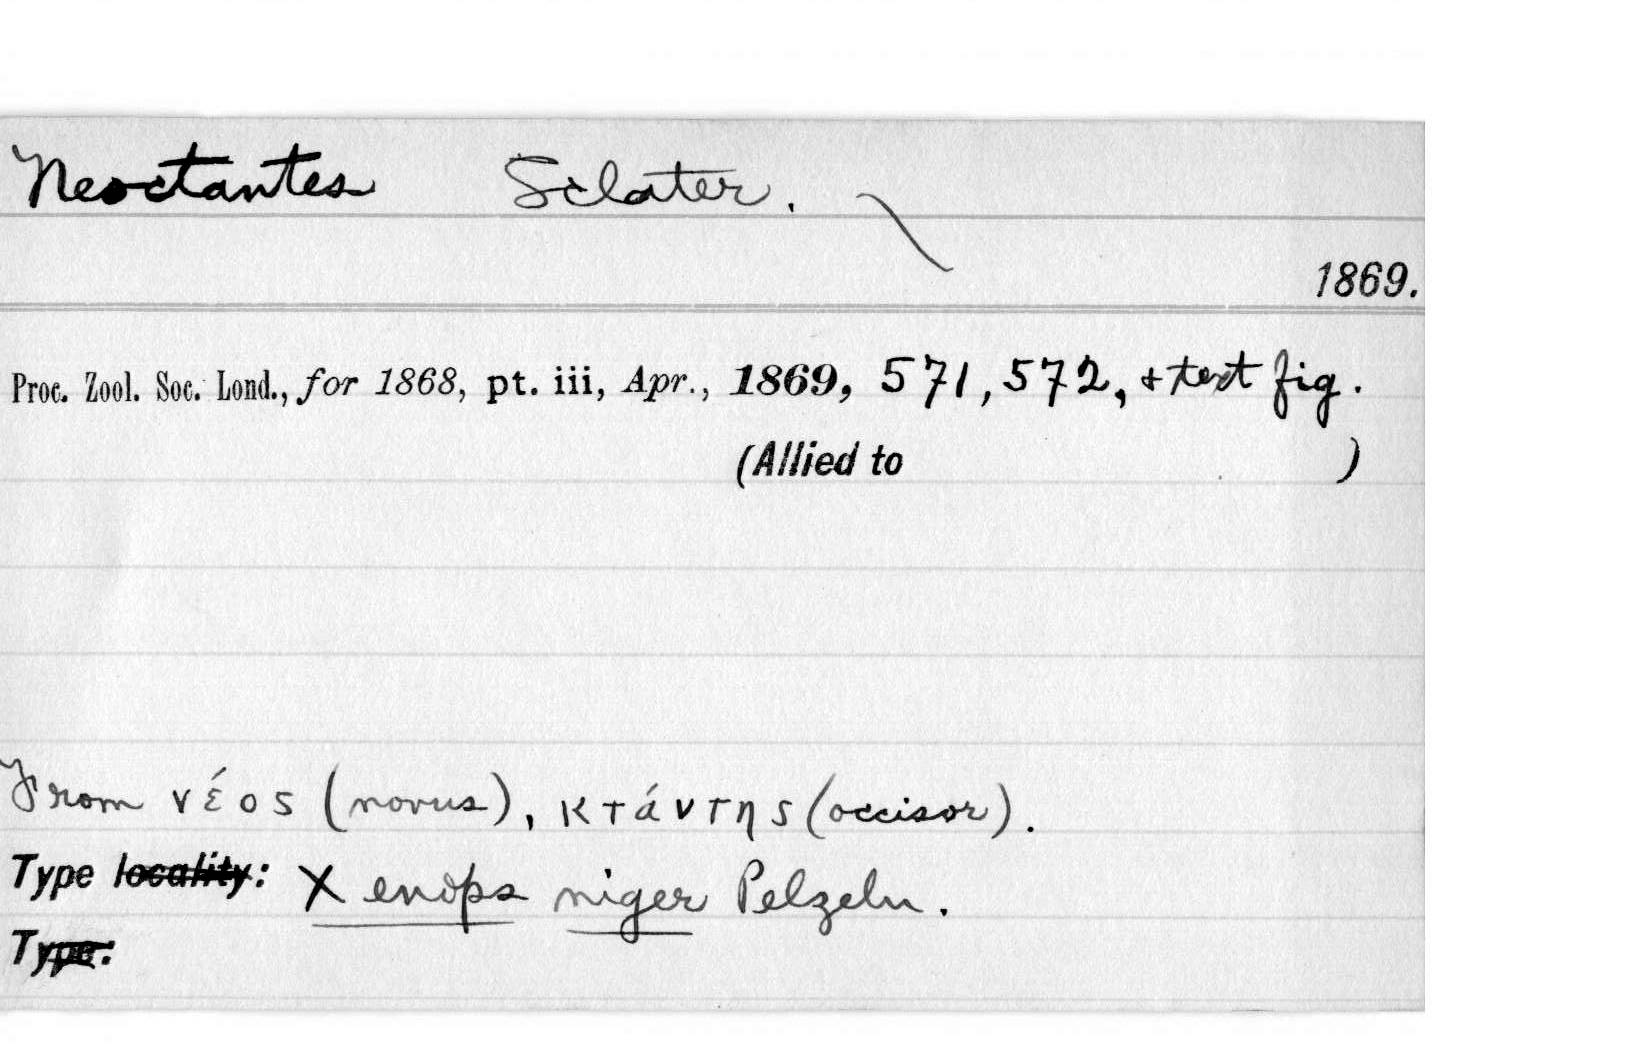 Neoctantes Sclater.
1869.
Proc. Zool. Soc. Lond., for 1868, pt. iii, Apr., 1869, 571, 572, + text fig.
(Allied to )
From νέος (novus), κτάντης (occisor).
Type locality: Xenops niger Pelzeln.
Type: